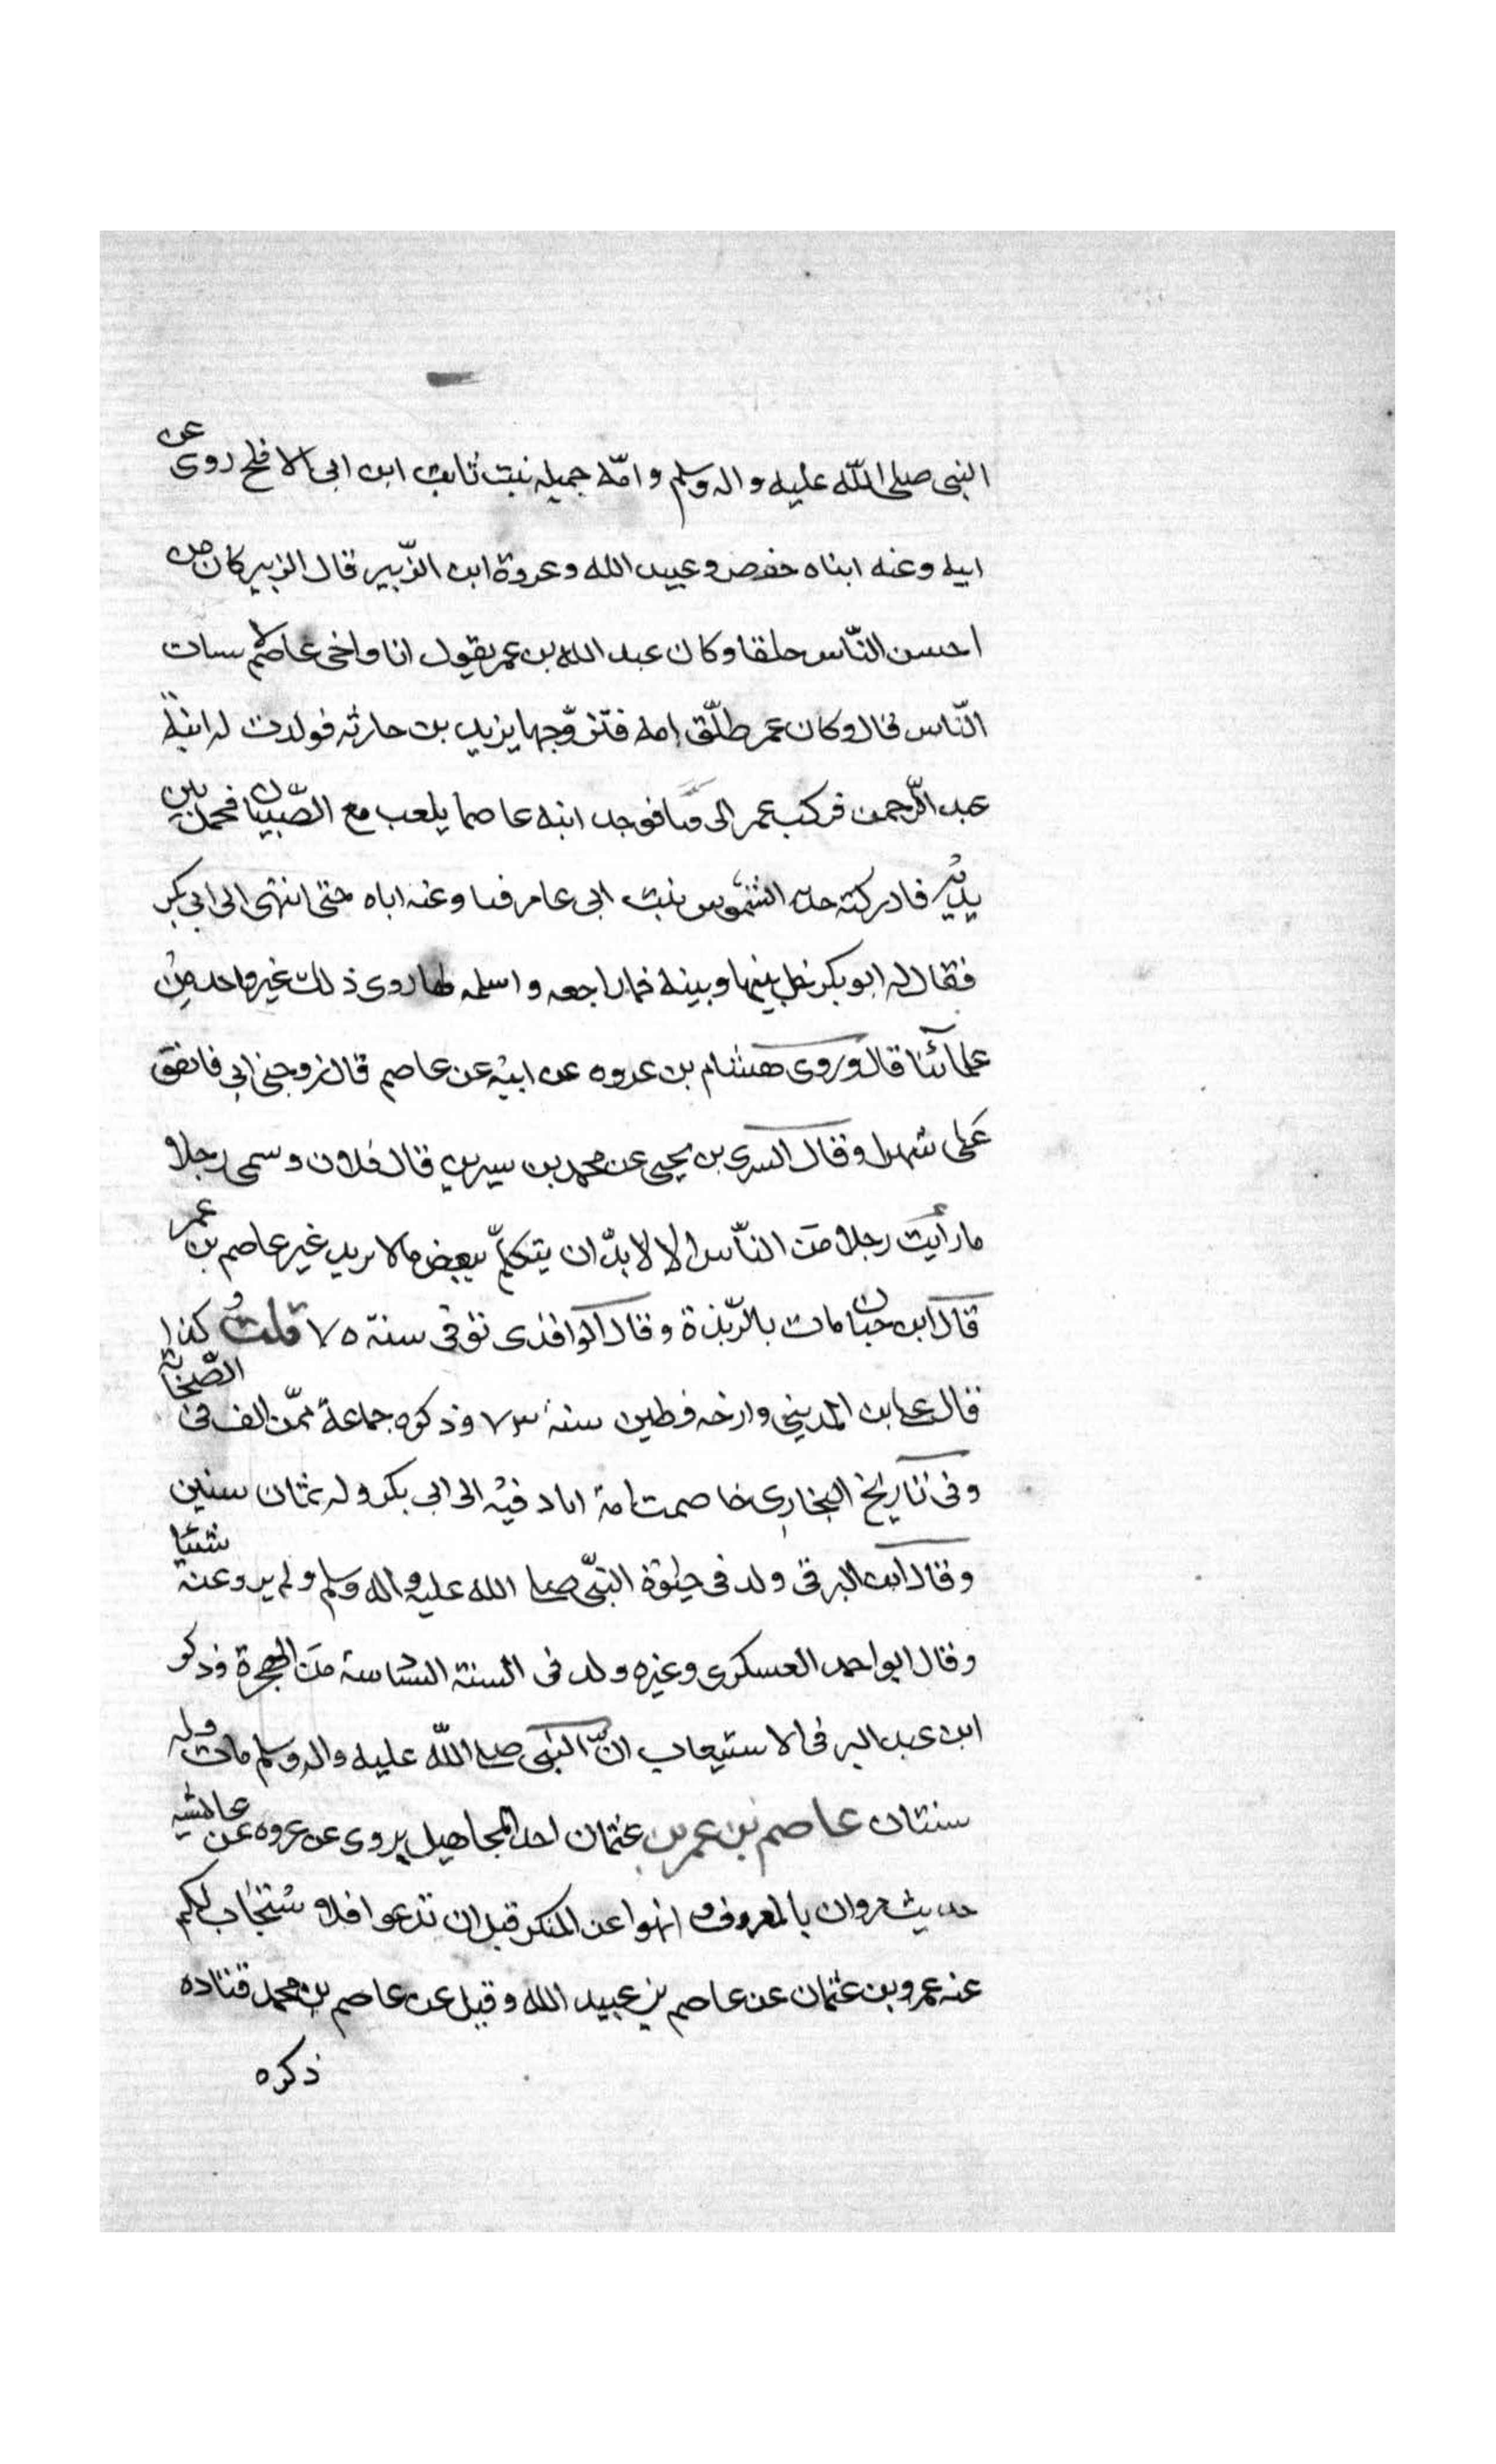 النبى صلى اللّه عليه واله وسلم وامّه جميله نبت ثابت ابن ابى الافلح روى عن
ابيه وعنه ابناه حفص وعبيد الله وعروة ابن الزّبير قال الزبير كان من
احسن النّاس خلقا وكان عبد الله بن عمر يقول انا واخى عاصم لا ساب
النّاس قال وكان عمر طلّق امه فتزوّجها يزيد بن حارثه فولدت له ابنه
عبد الرّحمن فركب عمر الى قبا فوجد ابنه عاصما يلعب مع الصّبيان فحمله بين
يديه فادركته جدته الشموس بنت ابى عامر حتى انتهى الى ابى بكر
فقال له ابو بكر خل بينها وبينه فما راجعه واسلمه لها روى ذلك غير واحد من
علمائنا قال وروى هشام بن عروه عن ابيه عن عاصم قال زوجنى ابى فانفق
على شهرا وقال السرى بن يحيى عن محمد بن سيرين قال فلان وسمى رجلا
ما رأيت رجلا منَ النّاس الا لا بدّ ان يتكلّم ببعض ما لا يريد غير عاصم بن عمر
قال ابن حبان مات بالرّبذة وقال الواقدى توفى سنة ٧٥ قلتُ كذا
قال على ابن المدينى وارخه فطين سنة ٧٣ وذكره جماعة ممّن الف فى الصّحابة
وفى تاريخ البخارى خاصمت امه اباه فيه الى ابى بكر وله ثمان سنين
وقال ابن البرقى ولد فى حيٰوة النبّى صلى الله عليه واله وسلم ولم يرو عنه شيئا
وقال ابو احمد العسكرى وغيره ولد فى السنة السادسة منَ الهجرة وذكر
ابن عبد البر فى الاستيعاب انّ النبى صلى اللّه عليه واله وسلم مات وله
سنتان عاصم بن عمر بن عثمان احد المجاهيل يروى عن عروه عن عائشه
حديث مروا بالمعروف و انهوا عن المنكر قبل ان تدعوا فلا يستجاب لكم
عنه عمرو بن عثمان عن عاصم بن عبيد الله وقيل عن عاصم بن محمد قتاده
ذكره